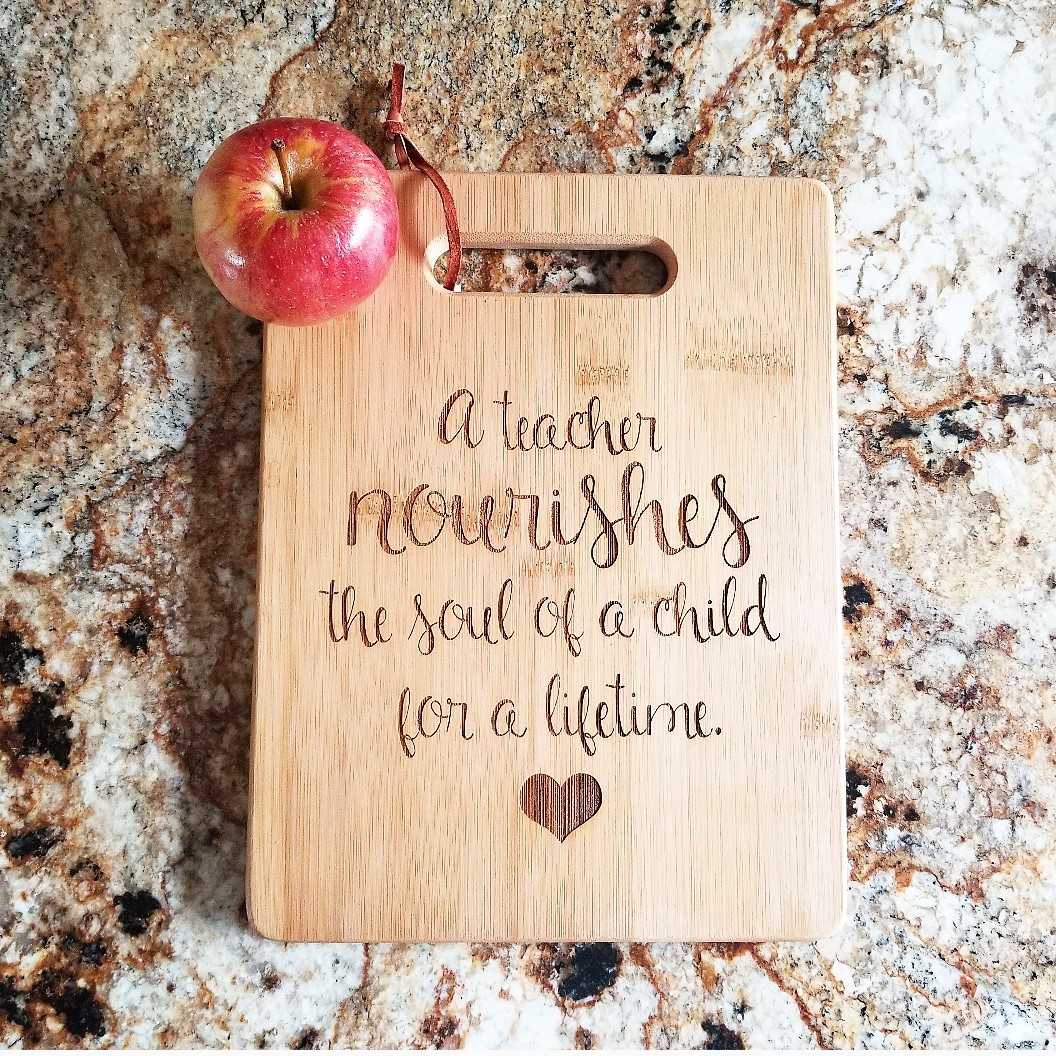 A teacher
nourishes
the soul of a child
for a lifetime.